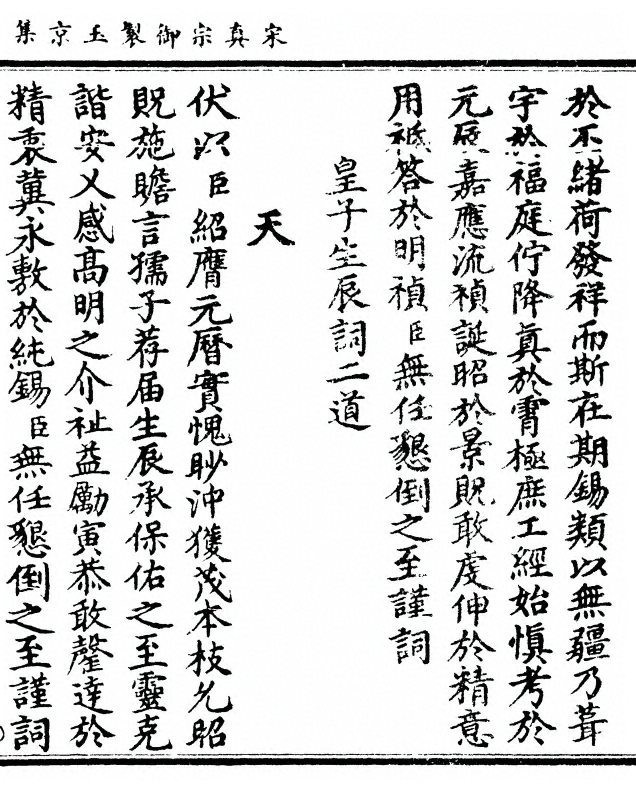 宋真宗御製玉京集
於丕緒荷發祥而斯在期錫類以無疆乃葺
宇於福庭佇降真於霄極庶工經始慎考於
元辰嘉應流禎誕昭於景貺敢虔伸於精意
用祗答於明禎臣無任懇倒之至謹詞
皇子生辰詞二道
天
伏以臣紹膺元曆實愧眇沖獲茂本枝允昭
貺施瞻言孺子荐届生辰承保佑之至靈克
諧安乂感高明之介祉益勵寅恭敢罄達於
精衷冀永敷於純錫臣無任懇倒之至謹詞